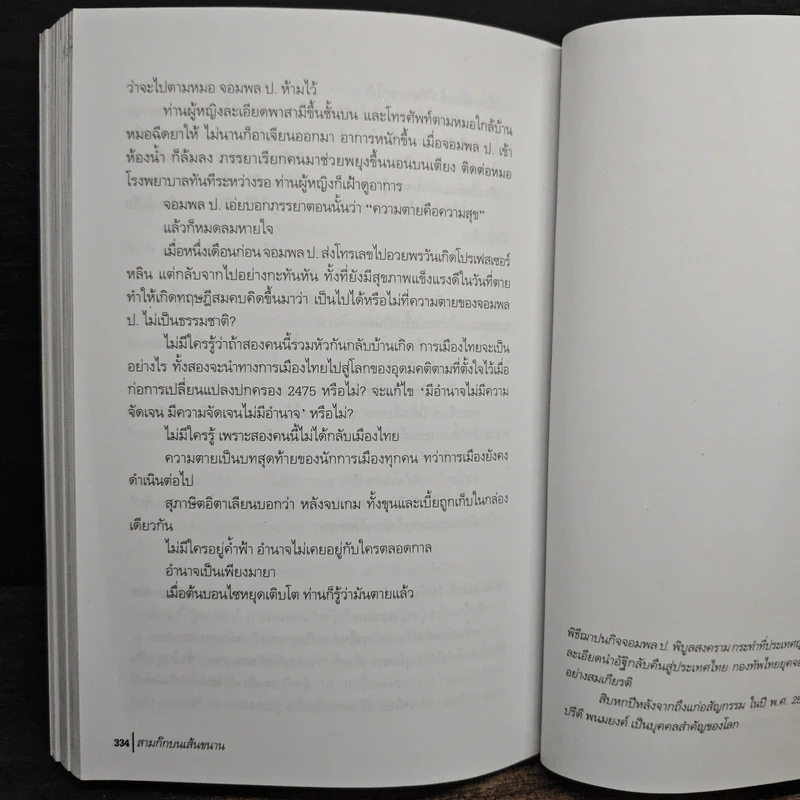 ว่าจะไปตามหมอ จอมพล ป. ห้ามไว้
ท่านผู้หญิงละเอียดพาสามีขึ้นชั้นบน และโทรศัพท์ตามหมอใกล้บ้าน
หมอฉีดยาให้ ไม่นานก็อาเจียนออกมา อาการหนักขึ้น เมื่อจอมพล ป. เข้า
ห้องน้ำ ก็ล้มลง ภรรยาเรียกคนมาช่วยพยุงขึ้นนอนบนเตียง ติดต่อหมอ
โรงพยาบาลทันทีระหว่างรอ ท่านผู้หญิงก็เฝ้าดูอาการ
จอมพล ป. เอ่ยบอกภรรยาตอนนั้นว่า “ความตายคือความสุข”
แล้วก็หมดลมหายใจ
เมื่อหนึ่งเดือนก่อน จอมพล ป. ส่งโทรเลขไปอวยพรวันเกิดโปรเฟสเซอร์
หลิน แต่กลับจากไปอย่างกะทันหัน ทั้งที่ยังมีสุขภาพแข็งแรงดีในวันที่ตาย
ทำให้เกิดทฤษฎีสมคบคิดขึ้นมาว่า เป็นไปได้หรือไม่ที่ความตายของจอมพล
ป. ไม่เป็นธรรมชาติ?
ไม่มีใครรู้ว่าถ้าสองคนนี้รวมหัวกันกลับบ้านเกิด การเมืองไทยจะเป็น
อย่างไร ทั้งสองจะนำทางการเมืองไทยไปสู่โลกของอุดมคติตามที่ตั้งใจไว้เมื่อ
ก่อการเปลี่ยนแปลงปกครอง 2475 หรือไม่? จะแก้ไข ‘มีอำนาจไม่มีความ
จัดเจน มีความจัดเจนไม่มีอำนาจ’ หรือไม่?
ไม่มีใครรู้ เพราะสองคนนี้ไม่ได้กลับเมืองไทย
ความตายเป็นบทสุดท้ายของนักการเมืองทุกคน ทว่าการเมืองยังคง
ดำเนินต่อไป
สุภาษิตอิตาเลียนบอกว่า หลังจบเกม ทั้งขุนและเบี้ยถูกเก็บในกล่อง
เดียวกัน
ไม่มีใครอยู่ค้ำฟ้า อำนาจไม่เคยอยู่กับใครตลอดกาล
อำนาจเป็นเพียงมายา
เมื่อต้นบอนไซหยุดเติบโต ท่านก็รู้ว่ามันตายแล้ว
334 | สามก๊กบนเส้นขนาน
พิธีฌาปนกิจจอมพล ป. พิบูลสงคราม กระทำที่ประเทศญ
ละเอียดนำอัฐิกลับคืนสู่ประเทศไทย กองทัพไทยยุคจอ
อย่างสมเกียรติ
สิบหกปีหลังจากถึงแก่อสัญกรรม ในปี พ.ศ. 25
ปรีดี พนมยงค์ เป็นบุคคลสำคัญของโลก